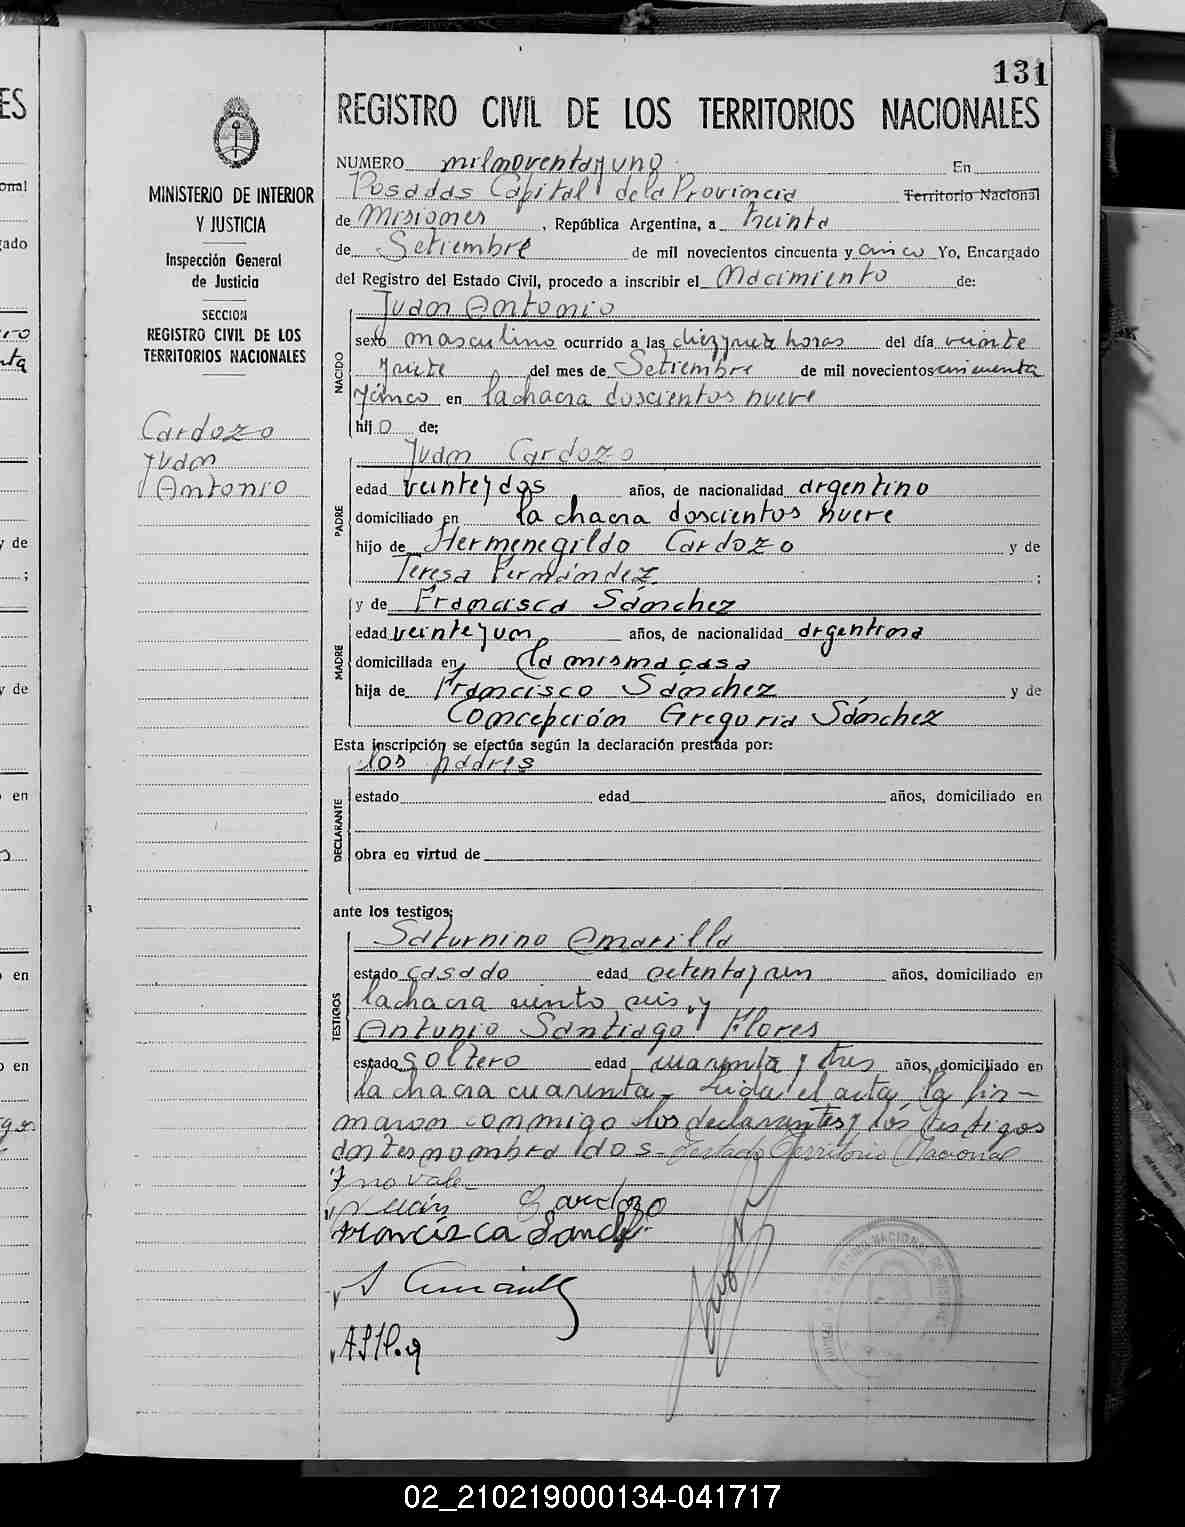 131
REGISTRO CIVIL DE LOS TERRITORIOS NACIONALES
MINISTERIO DE INTERIOR
Y JUSTICIA
Inspección General
de Justicia
SECCION
REGISTRO CIVIL DE LOS
TERRITORIOS NACIONALES
Cardozo
Juan
Antonio
NUMERO milnoventayuno En
Posadas Capital dela Provincia Territorio Nacional
de Misiones, República Argentina, a treinta
de Setiembre de mil novecientos cincuenta y cinco Yo, Encargado
del Registro del Estado Civil, procedo a inscribir el Nacimiento de:
Juan Antonio
NACIDO
sexo masculino ocurrido a las diezysiete horas del día veinte
ysiete del mes de Setiembre de mil novecientos cincuenta
ycinco en lachacra doscientos nueve
hijo de;
Juan Cardozo
PADRE
edad veinteydos años, de nacionalidad argentino
domiciliado en la chacra doscientos nueve
hijo de Hermenegildo Cardozo y de
Teresa Fernández ;
y de Francisca Sánchez
MADRE
edad veinteyun años, de nacionalidad argentina
domiciliada en la misma casa
hija de Francisco Sánchez y de
Concepción Gregoria Sánchez
Esta inscripción se efectúa según la declaración prestada por:
los padres
DECLARANTE
estado edad años, domiciliado en
obra en virtud de
ante los testigos;
Saturnino Amarilla
TESTIGOS
estado casado edad setentayun años, domiciliado en
lachacra ciento seis y
Antonio Santiago Flores
estado soltero edad cuarenta y tres años, domiciliado en
la chacra cuarenta. Leida el acta, la fir-
maron conmigo los declarantes y los testigos
antesnombrados- Testado Territorio Nacional
no vale-
Juan Cardozo
Francisca Sanchez
02_210219000134-041717